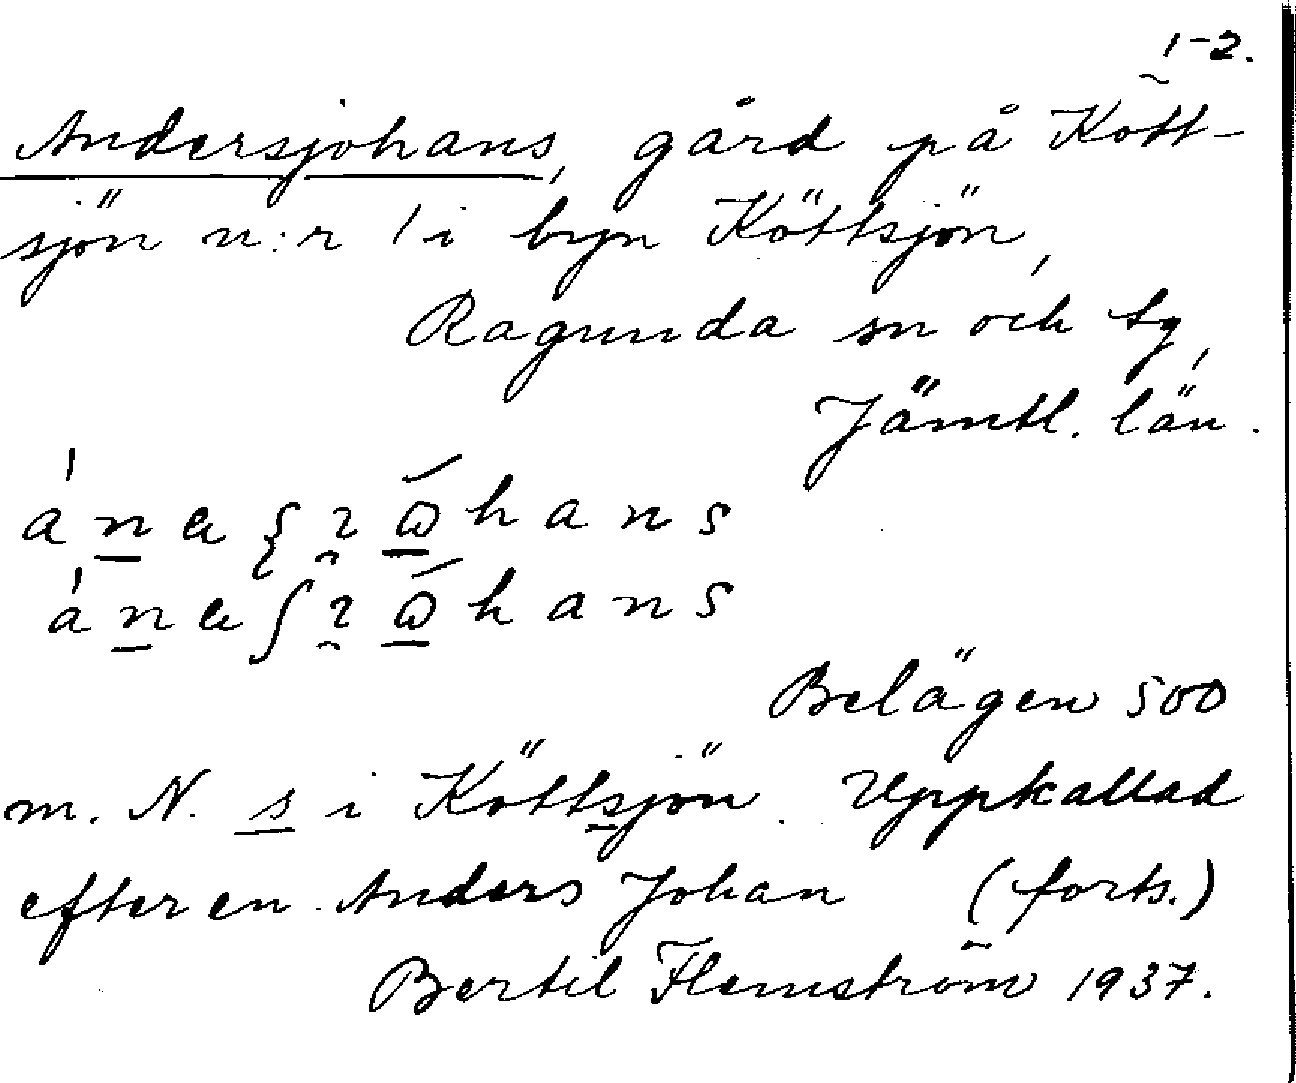 1-2.
Andersjohans, gård på Kött-
sjön n:r 1 i byn Köttsjön,
Ragunda sn och tg,
Jämtl. län.
Belägen 500
m. N. s i Köttsjön. Uppkallad
efter en Anders Johan (forts.)
Bertil Flemström 1937.